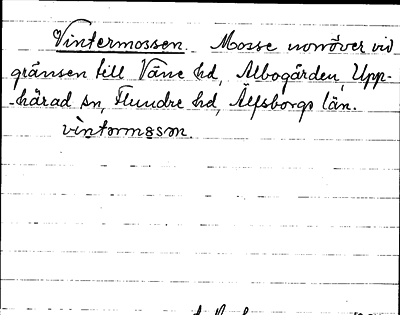 Vintermossen. Mosse norröver vid
gränsen till Väne hd, Albogården, Upp-
-härad sn, Flundre hd, Älfsborgs län.
vìntərmåsən.